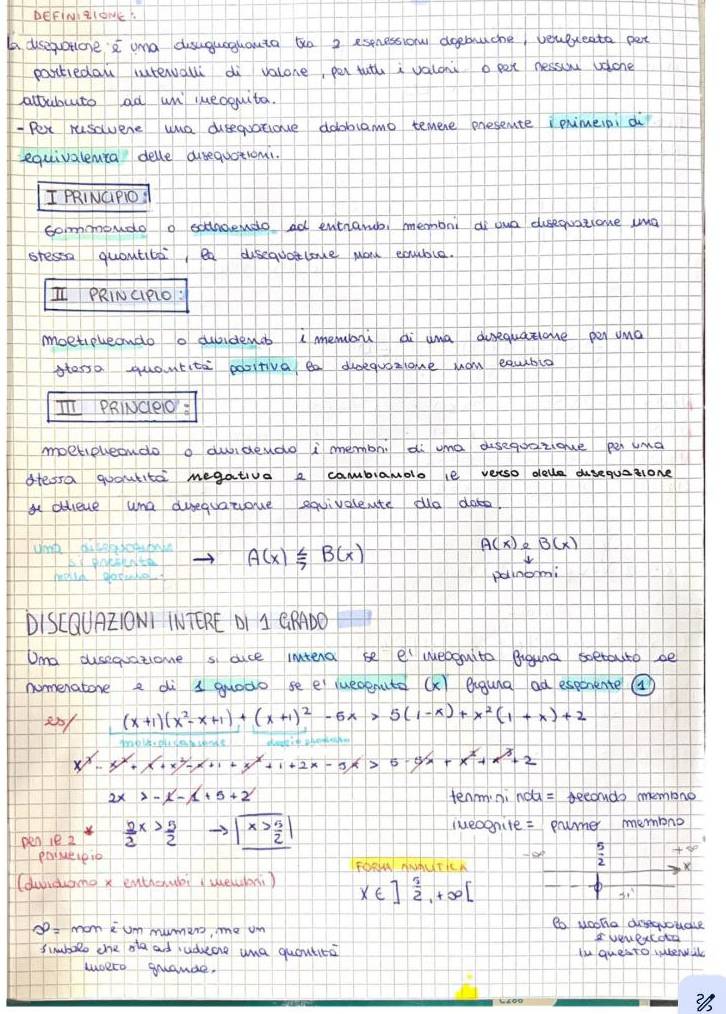 DEFINIZIONE:
la disequazione è una disuguaglianza tra 2 espressioni algebriche, verificata per
particolari intervalli di valore, per tutti i valori o per nessun valore
attribuito ad un' incognita.
- Per risolvere una disequazione dobbiamo tenere presente i principi di
equivalenza delle disequazioni.
I PRINCIPIO:
sommando o sottraendo ad entrambi membri di una disequazione una
stessa quantità, la disequazione non cambia.
II PRINCIPIO:
moltiplicando o dividendo i membri di una disequazione per una
stessa quantità positiva, la disequazione non cambia
III PRINCIPIO:
moltiplicando o dividendo i membri di una disequazione per una
stessa quantità negativa e cambiando il verso della disequazione
si ottiene una disequazione equivalente alla data.
una disequazione si presenta nella forma: → A(x) ≶ B(x)
A(x) e B(x)
↓
polinomi
DISEQUAZIONI INTERE DI 1 GRADO
Una disequazione si dice intera se l' incognita figura soltanto al
numeratore e di 1 grado se l' incognita (x) figura ad esponente 1
es/ (x+1)(x²-x+1) + (x+1)² - 5x > 5(1-x) + x²(1+x) + 2
moltiplicazione
x³ - x² + x + x² - x + 1 + x² + 1 + 2x - 5x > 5 - 5x + x² + x³ + 2
2x > -1 -1 + 5 + 2
termini noti = secondo membro
incognite = primo membro
per il 2 principio * 2/2 x > 5/2 → x > 5/2
(dividiamo x entrambi i membri)
FORMA ANALITICA
x ∈ ] 5/2, +∞ [
-∞ 5/2 +∞
x
sì
la nostra disequazione
è verificata
in questo intervallo
∞ = non è un numero, ma un
simbolo che sta ad indicare una quantità
molto grande.